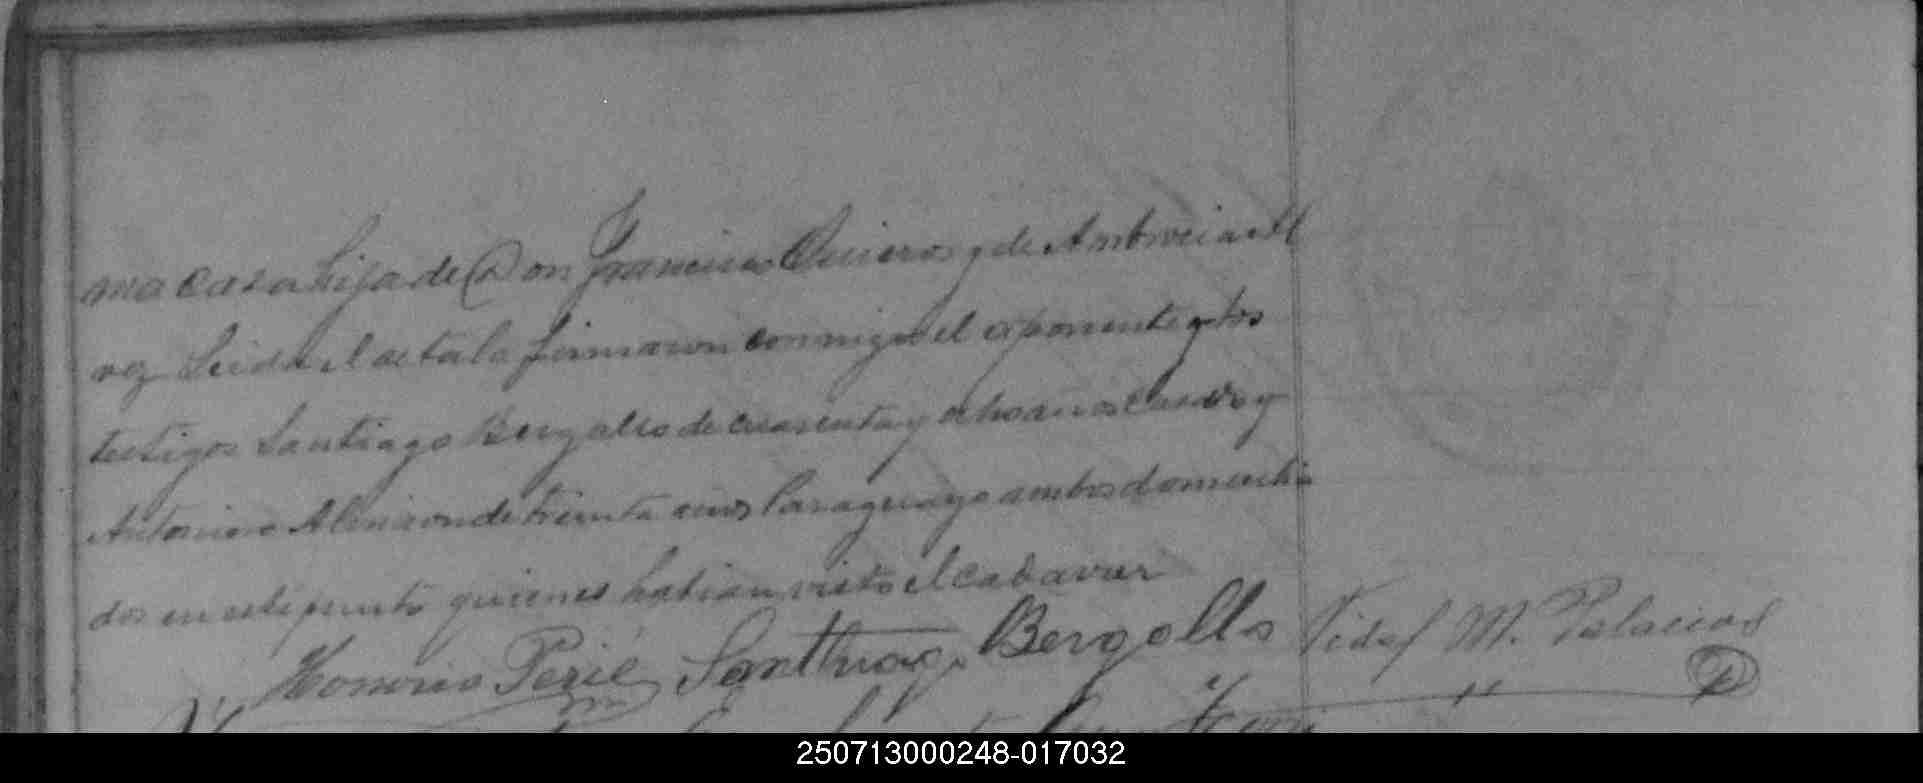 ma casa hija de Don Francisco Quieros y de Ambrocia
vez Leida el acta la firmaron conmigo el esponente y los
testigos Santiago Bergallo de cuarenta y ocho años casado y
Antonino de treinta años Paraguayo ambos domicilia
dos en este punto quienes habian visto el cadaver
Honorio Perié Santhiago Bergallo Vidal M. Palacios
250713000248-017032